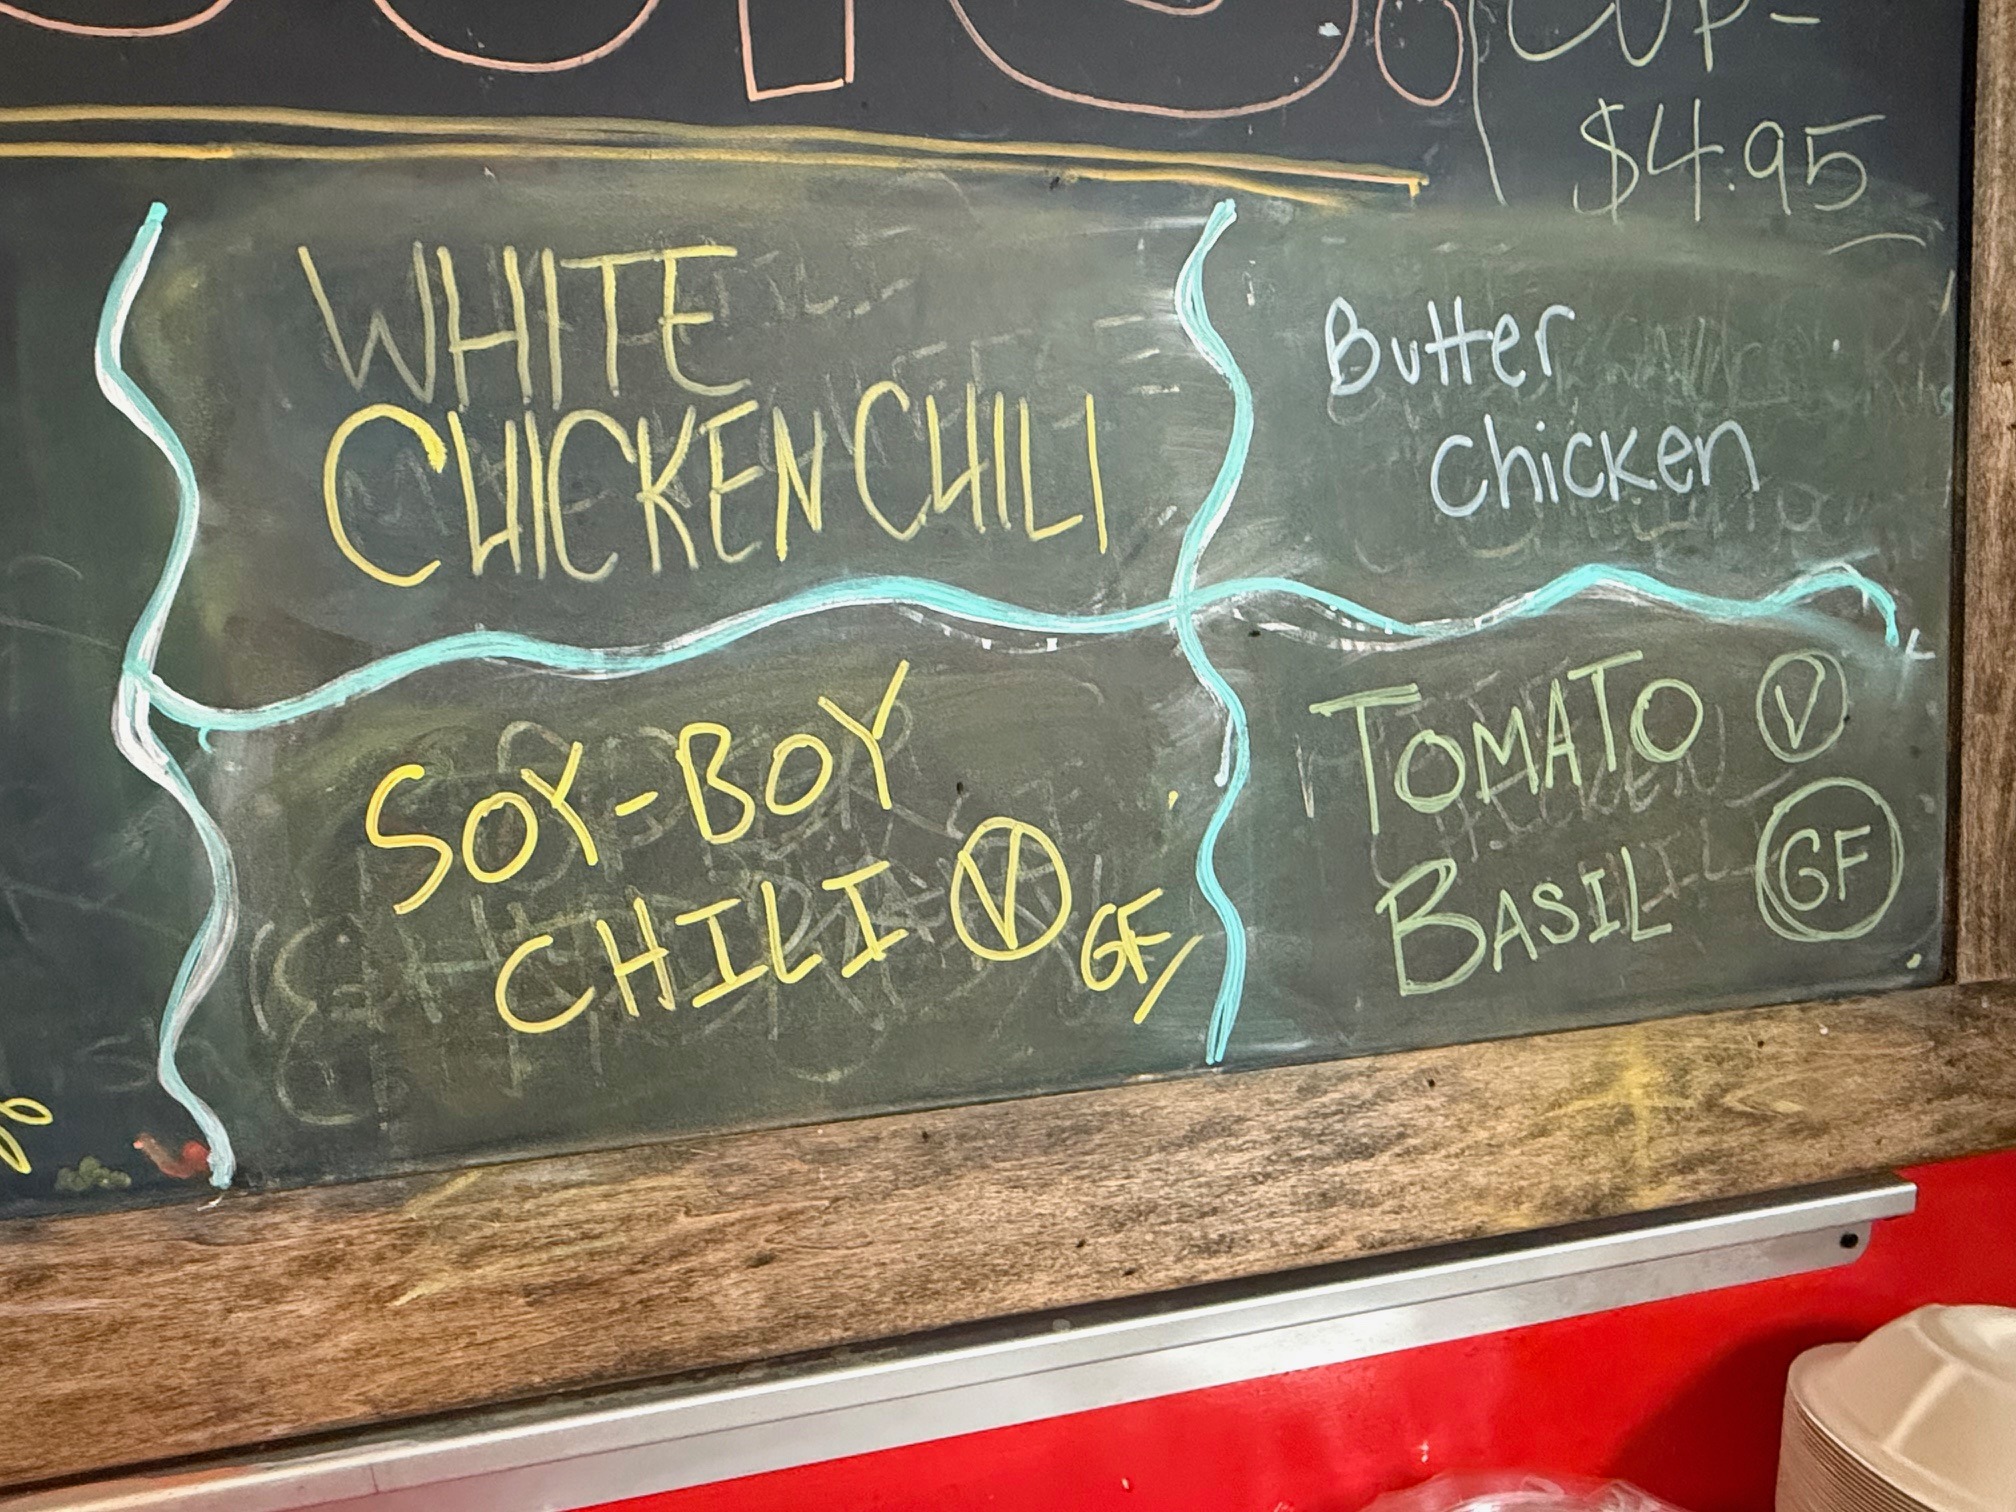 CUP-
$4.95
WHITE
CHICKEN CHILI
Butter
Chicken
SOY-BOY
CHILI V GF
TOMATO V
BASIL GF